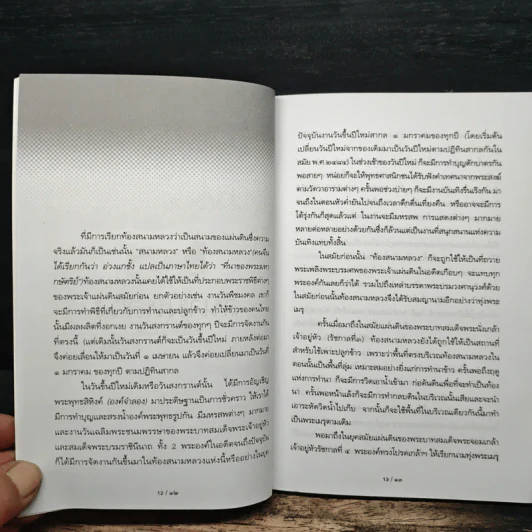 ที่มีการเรียกท้องสนามหลวงว่าเป็นสนามของแผ่นดินซึ่งความ
จริงแล้วมันก็เป็นเช่นนั้น "สนามหลวง" หรือ "ท้องสนามหลวง"
ได้เรียกกันว่า แปลเป็นภาษาไทยได้ว่า "ที่นาของพระมหา
กษัตริย์")ท้องสนามหลวงเคยได้ใช้ให้เป็นที่ประกอบพระราชพิธีต่างๆ
ของพระเจ้าแผ่นดินสมัยก่อน ยกตัวอย่างเช่น งานวันพืชมงคล เขาก็
จะมีการทำพิธีที่เกี่ยวกับการทำนาและปลูกข้าว ทำให้ข้าวของคนไทย
นั้นมีผลผลิตที่งอกเงย งานวันสงกรานต์ของทุกๆ ปีจะมีการจัดงานกัน
ที่ตรงนี้ (แต่เดิมนั้นวันสงกรานต์ก็จะเป็นวันขึ้นปีใหม่ ภายหลังต่อมา
จึงค่อยเลื่อนให้มาเป็นวันที่ ๑ เมษายน แล้วจึงค่อยเปลี่ยนมาเป็นวันที่
๑ มกราคม ของทุกปี ตามปฏิทินสากล
ในวันขึ้นปีใหม่เดิมหรือวันสงกรานต์นั้น ได้มีการอัญเชิญ
พระพุทธสิหิงค์ (องค์จำลอง) มาประดิษฐานเป็นการชั่วคราว ให้เราได้
มีการทำบุญและสรงน้ำองค์พระพุทธรูปกัน มีมหรสพต่างๆ มากมาย
และงานวันเฉลิมพระชนมพรรษาของพระบาทสมเด็จพระเจ้าอยู่หัว
และสมเด็จพระบรมราชินีนาถ ทั้ง 2 พระองค์ในอดีตจนถึงปัจจุบัน
ก็ได้มีการจัดงานกันขึ้นมาในท้องสนามหลวงแห่งนี้หรืออย่างในยุค
12 / ๑๒
ปัจจุบันงานวันขึ้นปีใหม่สากล ๑ มกราคมของทุกปี (โดยเริ่มต้น
เปลี่ยนวันปีใหม่จากของเดิมมาเป็นวันปีใหม่ตามปฏิทินสากลกันใน
สมัย พ.ศ.๒๔๘๔) ในช่วงเช้าของวันปีใหม่ ก็จะมีการทำบุญตักบาตรกัน
พอสายๆ หน่อยก็จะให้พุทธศาสนิกชนได้รับฟังคำเทศนาจากพระสงฆ์
ตามวัดวาอารามต่างๆ ครั้นพอช่วงบ่ายๆ ก็จะมีงานบันเทิงรื่นเริงกัน มา
จนถึงในตอนหัวค่ำยันไปจนถึงเวลาดึกดื่นเที่ยงคืน หรืออาจจะมีการ
โต้รุ่งกันก็สุดแล้วแต่ ในงานจะมีมหรสพ การแสดงต่างๆ มากมาย
หลายต่อหลายอย่างด้วยกันซึ่งก็ล้วนแต่เป็นงานที่สนุกสนานแห่งความ
บันเทิงแทบทั้งสิ้น
ในสมัยก่อนนั้น "ท้องสนามหลวง" ก็จะถูกใช้ให้เป็นที่ถวาย
พระเพลิงพระบรมศพของพระเจ้าแผ่นดินในอดีตเกือบๆ จะแทบทุก
พระองค์กันเลยก็ว่าได้ รวมไปถึงเหล่าบรรดาพระบรมวงศานุวงศ์ด้วย
สมัยก่อนนั้นท้องสนามหลวงจึงได้รับสมญานามอีกอย่างว่าทุ่งพระ
เมรุ
ครั้นเมื่อมาถึงในสมัยแผ่นดินของพระบาทสมเด็จพระนั่งเกล้า
เจ้าอยู่หัว (รัชกาลที่๓) ท้องสนามหลวงยังได้ถูกใช้ให้เป็นสถานที่
สำหรับใช้เพาะปลูกข้าว เพราะว่าพื้นที่ตรงบริเวณท้องสนามหลวงใน
ตอนนั้นเป็นพื้นที่ลุ่ม เหมาะสมอย่างยิ่งแก่การทำนาข้าว ครั้นพอถึงฤดู
แห่งการทำนา ก็จะมีการวิดเอาน้ำเข้ามา ก่อคันดินเพื่อที่จะทำเป็นท้อง
นา ครั้นพอหน้าแล้งก็จะมีการทำกลบดินในบริเวณนั้นเสียและจะนำ
เอาระหัดวิดน้ำไปเก็บ จากนั้นก็จะใช้พื้นที่ในบริเวณเดียวกันนี้มาทำ
เป็นพระเมรุตามเดิม
พอมาถึงในยุคสมัยแผ่นดินของพระบาทสมเด็จพระจอมเกล้า
เจ้าอยู่หัวรัชกาลที่ ๔ พระองค์ทรงโปรดเกล้าฯ ให้เรียกนามทุ่งพระเมรุ
13 / ๑๓